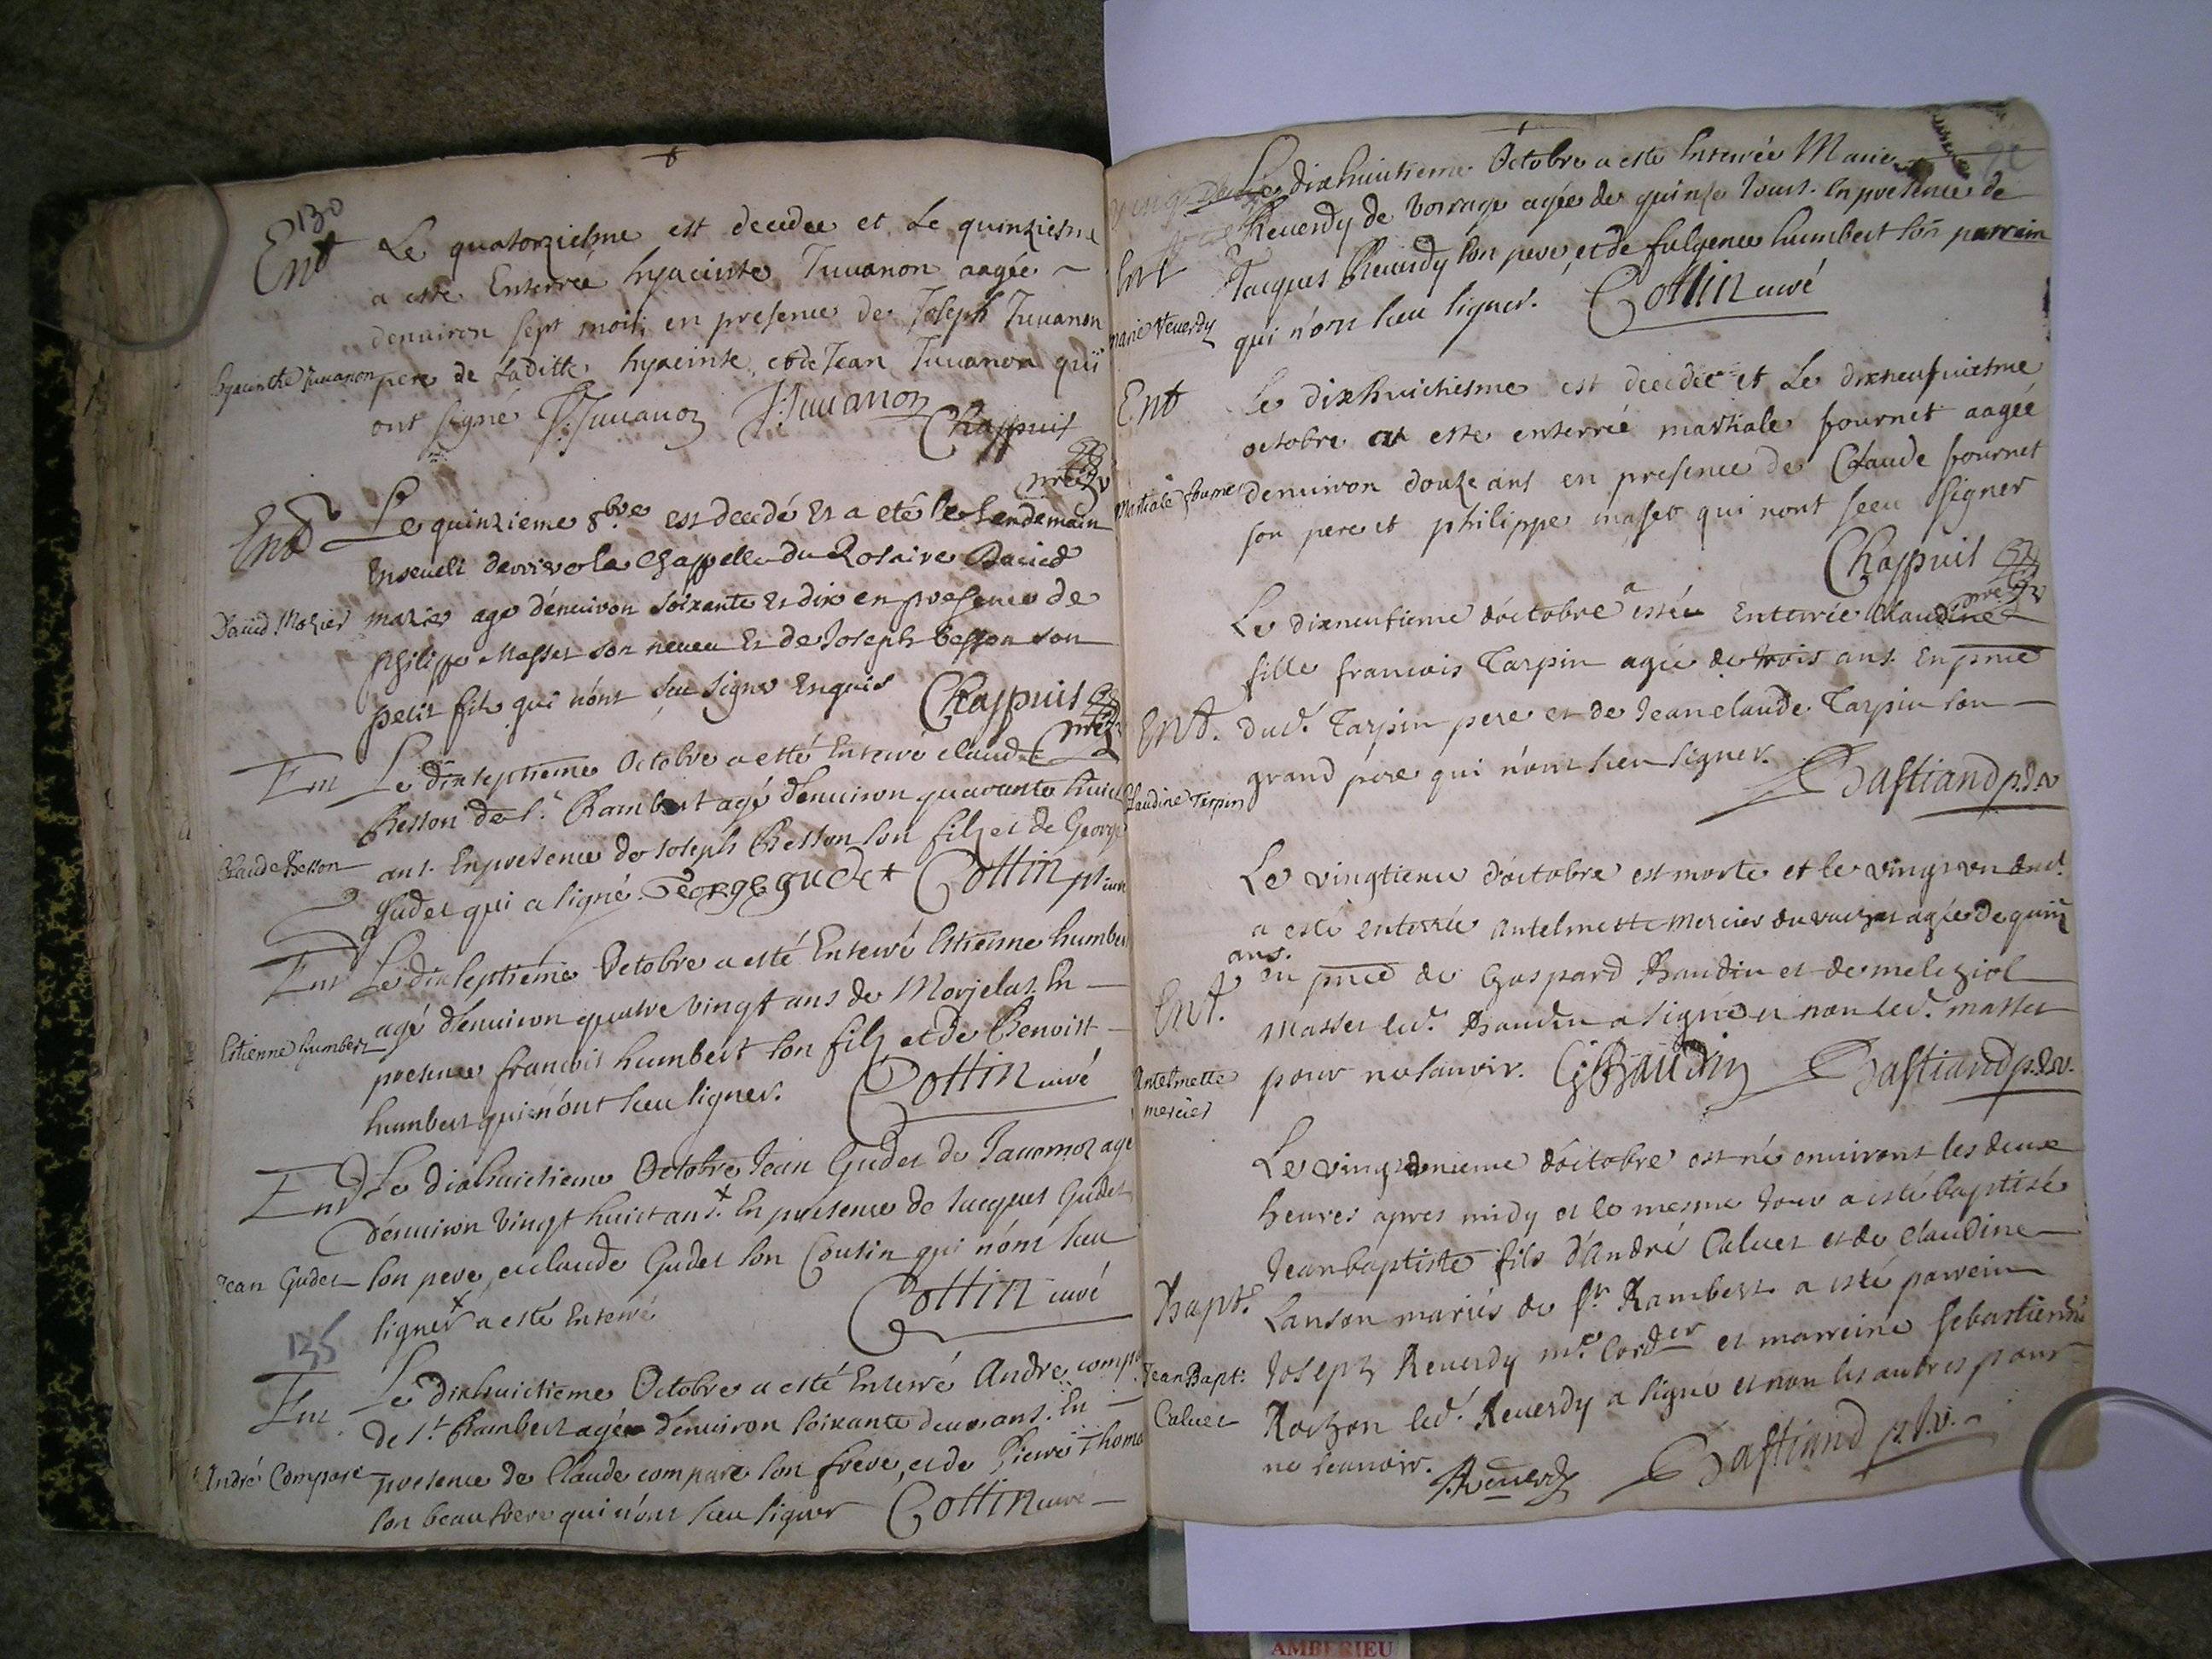 130
Ent Le quatorziesme est decedee et Le quinziesme
a este Enterreé hyacinte Juuanon aagée
denuiron sept mois, en presence de Joseph Juuanon
hyacinthe Juuanon pere de Laditte hyacinte, et de Jean Juuanon qui
ont signé J: Juuanon J: Juuanon Chappuis
Ent Le quinzieme 8bre est decedé Et a eté le Lendemain
Enseueli derriere la Chappelle du Rosaire Dauid
Dauid Mazier mazier agé d'enuiron soixante Et dix en presence de
philippe Masset son neueu Et de Joseph besson son
petit fils qui n'ont sceu signer Enquis Chappuis
Ent Le dixseptieme Octobre a esté Enterré claude
Besson de St. Rambert agé d'enuiron quarante huict
Claude Besson ans. En presence de Joseph Besson son filz et de George
Gudet qui a signé. George gudet Cottin
Ent Le dixseptieme Octobre a esté Enterré Estienne humbert
agé d'enuiron quatre vingt ans de Morjelas. En
Estienne humbert presence francois humbert son filz et de Benoist
humbert qui n'ont sceu signer. Cottin curé
Ent Le dixhuictieme Octobre Jean Gudet de Jauornoz agé
d'enuiron vingt huict ans.x En presence de Jacques Gudet
Jean Gudet son pere, et claude Gudet son Cousin qui n'ont sceu
signer x a esté Enterré Cottin curé
135
Ent Le dixhuictieme Octobre a esté Enterré André compare
de St. Rambert agé d'enuiron soixante deux ans. En
André Compare presence de Claude compare son frere, et de Pierre Thoma
son beau frere qui n'ont sceu signer Cottin curé
Le dixhuictieme Octobre a este Enterrée Marie
Reuerdy de vorage agée de quinze Jours. En presence de
Ent Jacques Reuerdy son pere, et de fulgence humbert son parrain
marie Reuerdy qui n'ont sceu signer. Cottin curé
Ent Le dixhuictiesme est decedee et Le dixneufuiesme
octobre a este enterreé martiale fournet aagée
Martiale fournet denuiron douze ans en presence de Claude fournet
son pere et philippe masset qui n'ont sceu signer
Chappuis
Le dixneufieme d'octobre a esté Enterrée Claudine
fille francois Tarpin agée de trois ans. En pnce
Ent. dud. Tarpin pere et de Jean claude Tarpin son
Claudine Terpin grand pere qui n'ont sceu signer. Bastiand p.d.v
Le vingtieme d'octobre est morte et le vingt vn dud.
a esté enterrée antelmette mercier du agée de quinz
ans.
Ent. en pnce de Gaspard Baudin et de melchiol
Masset led. Baudin a signé et non led. masset
Antelmette mercier pour ne scauoir. G Baudin Bastiand p.d.v.
Le vingt vnieme d'octobre est né enuiront les deux
heures apres midy et le mesme Jour a esté baptisé
Jean baptiste fils d'André Caluet et de claudine
Bapt. Lanson mariés de St Rambert. a esté parrein
Jean Bapt. Joseph Reuerdy me. Cordier et marreine sebastienne
Caluet Rochon led. Reuerdy a signé et non les autres pour
ne scauoir. J. Reuerdy Bastiand p.d.v.
AMBERIEU